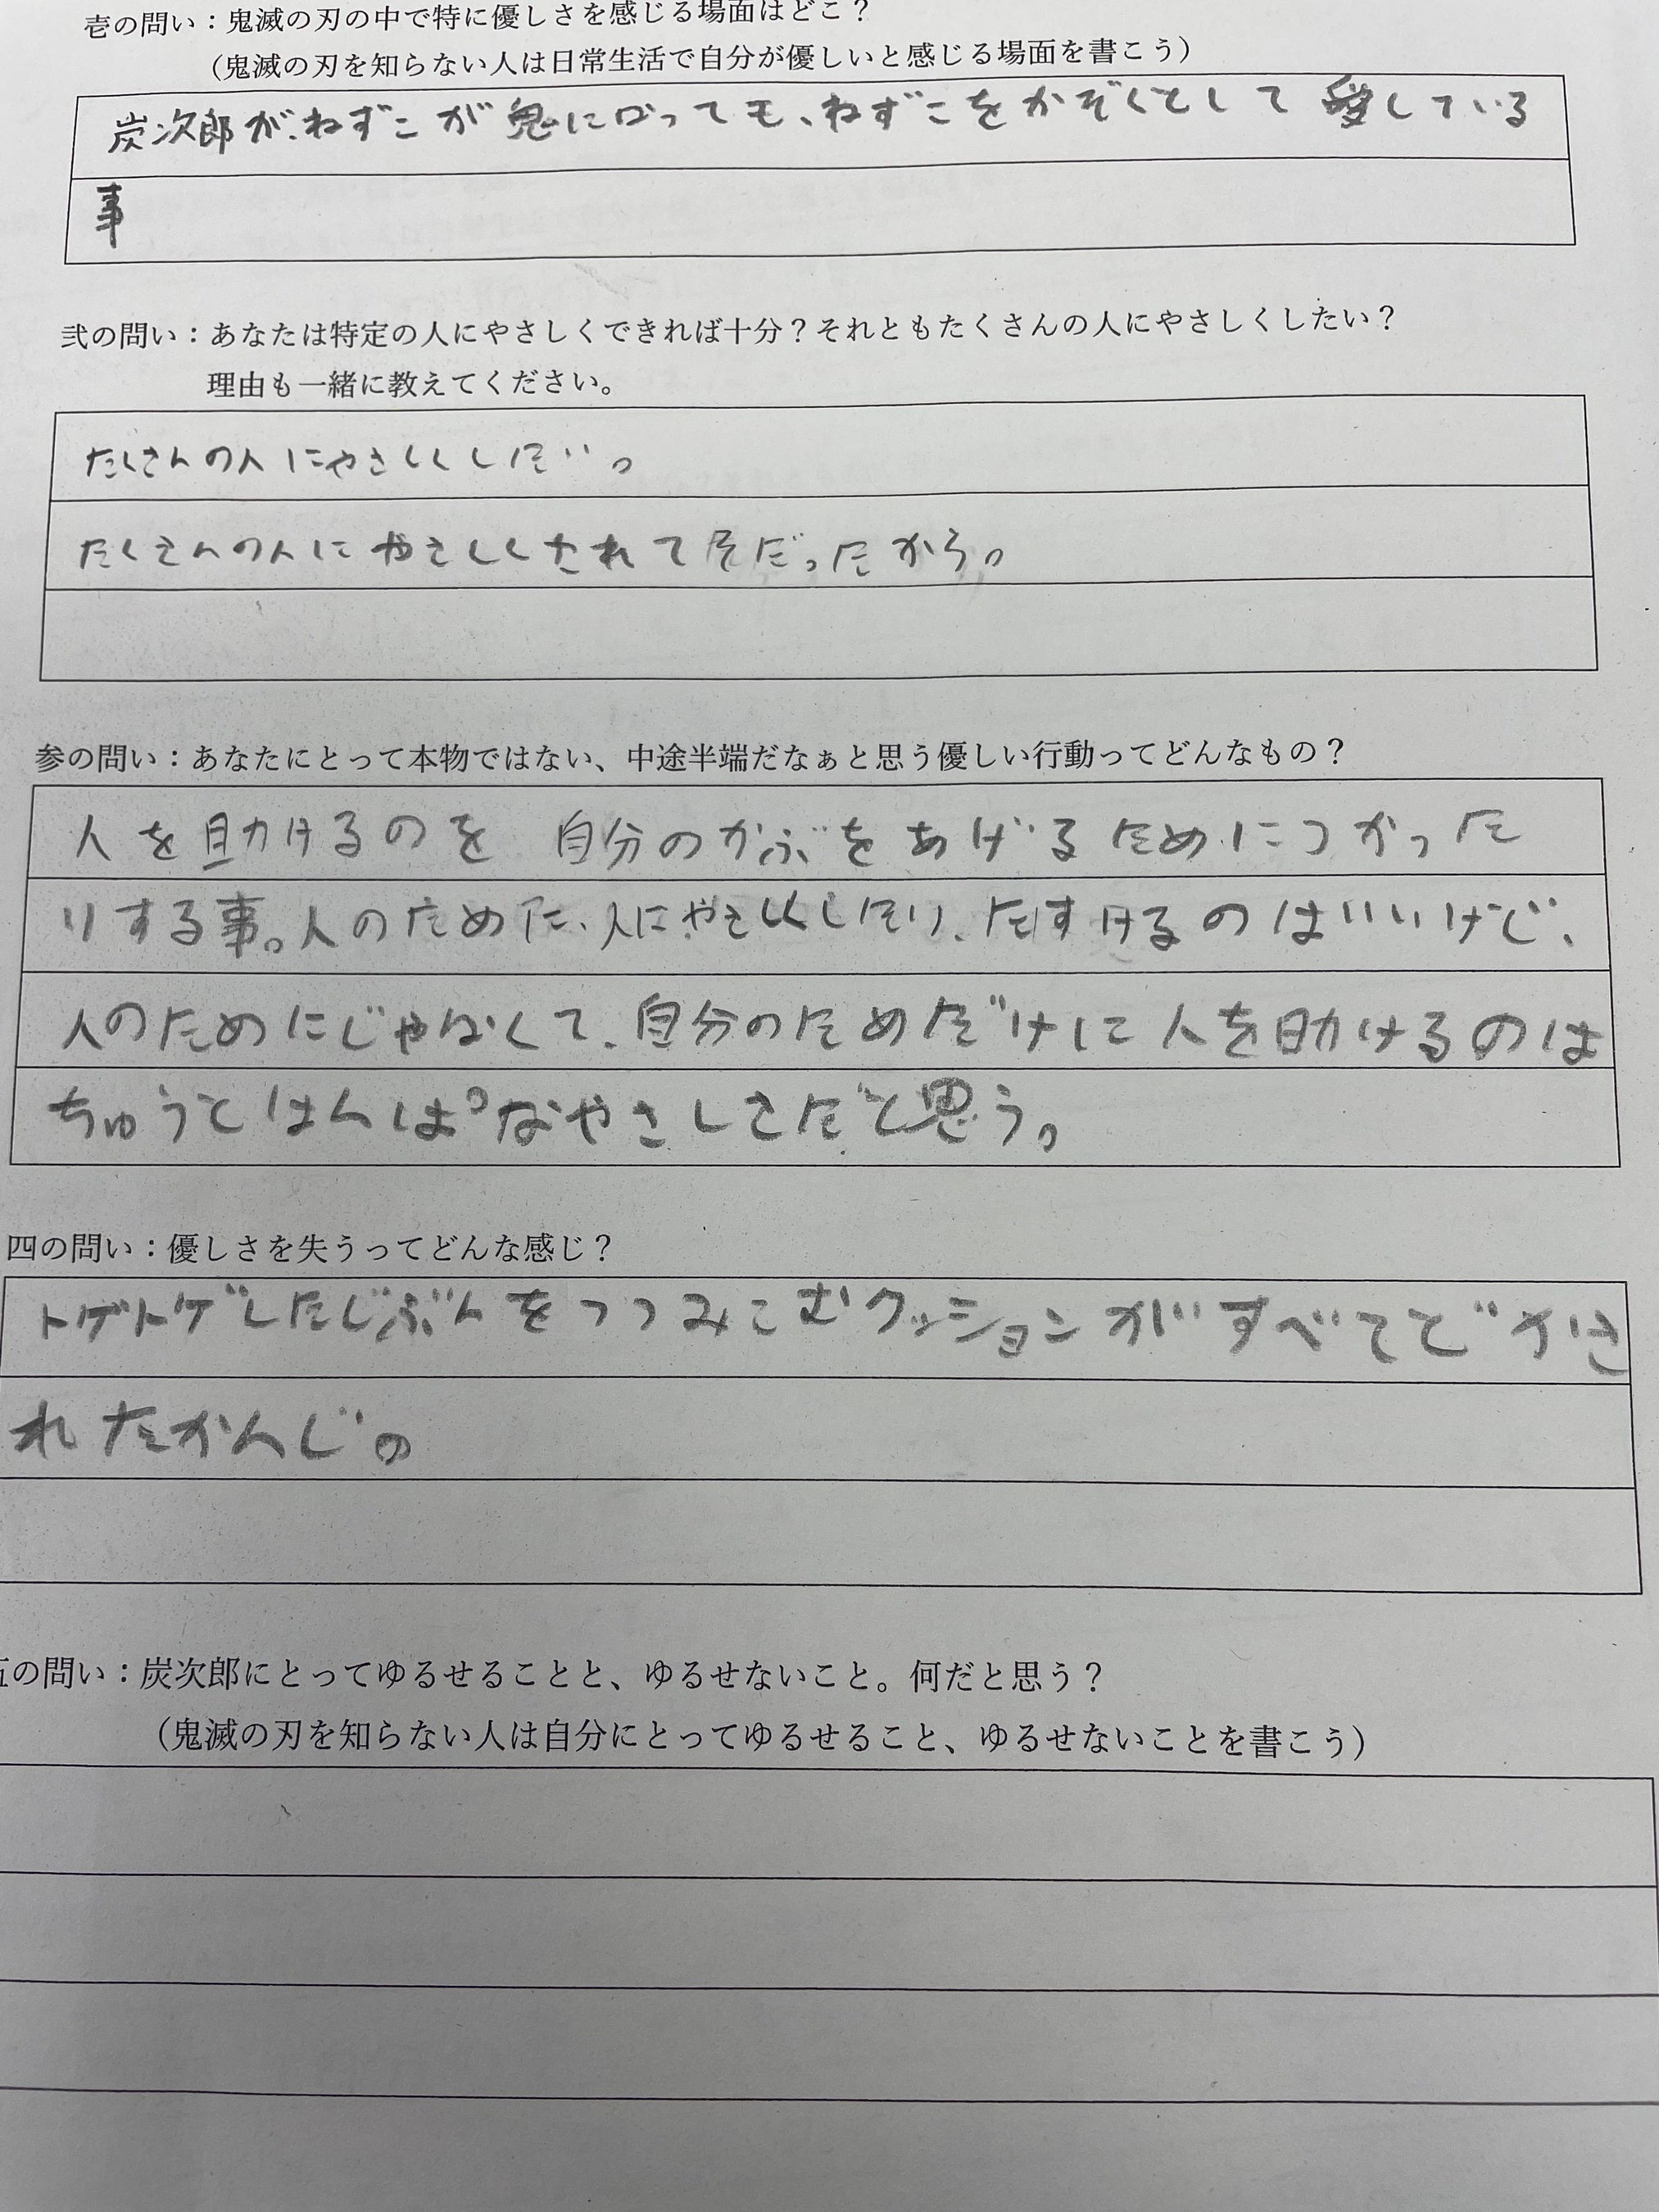 壱の問い：鬼滅の刃の中で特に優しさを感じる場面はどこ？
（鬼滅の刃を知らない人は日常生活で自分が優しいと感じる場面を書こう）
炭次郎が、ねずこが鬼になっても、ねずこをかぞくとして愛している
事
弐の問い：あなたは特定の人にやさしくできれば十分？それともたくさんの人にやさしくしたい？
理由も一緒に教えてください。
たくさんの人にやさしくしたい。
たくさんの人にやさしくされて育だったから。
参の問い：あなたにとって本物ではない、中途半端だなぁと思う優しい行動ってどんなもの？
人を助けるのを 自分のかぶをあげるためにつかった
りする事。人のために、人にやさしくしたり、たすけるのはいいけど、
人のためにじゃなくて、自分のためだけに人を助けるのは
ちゅうとはんぱなやさしさだと思う。
四の問い：優しさを失うってどんな感じ？
トゲトゲしたじぶんをつつみこむクッションがすべててどかさ
れたかんじ。
五の問い：炭次郎にとってゆるせることと、ゆるせないこと。何だと思う？
（鬼滅の刃を知らない人は自分にとってゆるせること、ゆるせないことを書こう）